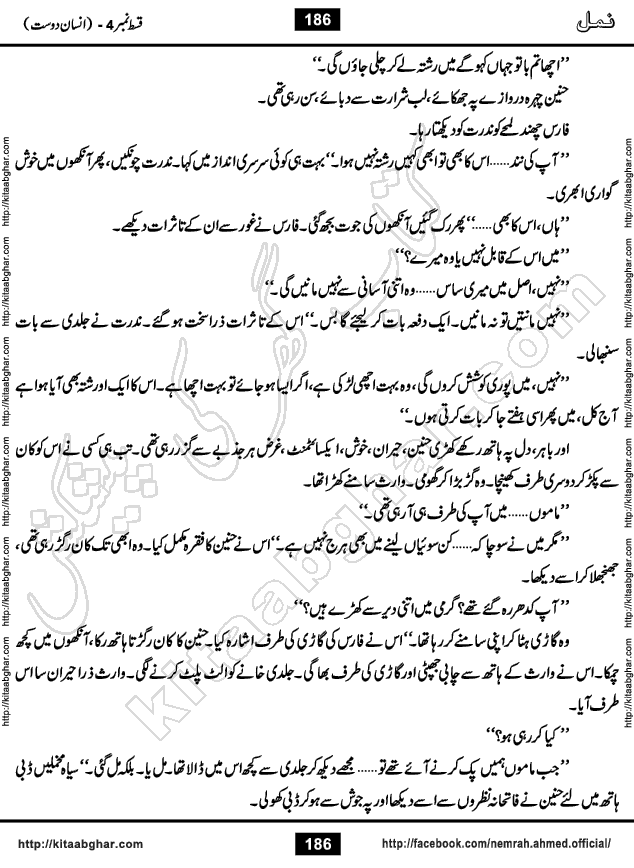 نمل 186 قسط نمبر 4 - (انسان دوست)
’’اچھا تم بتاؤ جہاں کہو گے میں رشتہ لے کر چلی جاؤں گی۔‘‘
حنین چہرہ دروازے پہ جھکائے، لب شرارت سے دبائے، سن رہی تھی۔
فارس چند لمحے کو ندرت کو دیکھتا رہا۔
’’آپ کی نند......اس کا بھی تو ابھی کہیں رشتہ نہیں ہوا۔‘‘ بہت ہی کوئی سرسری انداز میں کہا۔ ندرت چونکیں، پھر آنکھوں میں خوش
گواری ابھری۔
’’ہاں، اس کا بھی......‘‘ پھر رک گئیں آنکھوں کی جوت بجھ گئی۔ فارس نے غور سے ان کے تاثرات دیکھے۔
’’میں اس کے قابل نہیں یا وہ میرے؟‘‘
’’نہیں، اصل میں میری ساس......وہ اتنی آسانی سے نہیں مانیں گی۔‘‘
’’نہیں مانتیں تو نہ مانیں۔ ایک دفعہ بات کر لیجئے گا بس۔‘‘ اس کے تاثرات ذرا سخت ہو گئے۔ ندرت نے جلدی سے بات
سنبھالی۔
’’نہیں، میں پوری کوشش کروں گی، وہ بہت اچھی لڑکی ہے، اگر ایسا ہو جائے تو بہت اچھا ہے۔ اس کا ایک اور رشتہ بھی آیا ہوا ہے
آج کل، میں پھر اسی ہفتے جا کر بات کرتی ہوں۔‘‘
اور باہر، دل پہ ہاتھ رکھے کھڑی حنین، حیران، خوش، ایکسائٹمنٹ، غرض ہر جذبے سے گزر رہی تھی۔ تب ہی کسی نے اس کو کان
سے پکڑ کر دوسری طرف کھینچا۔ وہ گڑبڑا کر گھومی۔ وارث سامنے کھڑا تھا۔
’’ماموں......میں آپ کی طرف ہی آ رہی تھی۔‘‘
’’مگر میں نے سوچا کہ......کن سوئیاں لینے میں بھی ہرج نہیں ہے۔‘‘ اس نے حنین کا فقرہ مکمل کیا۔ وہ ابھی تک کان رگڑ رہی تھی،
جھنجھلا کر اسے دیکھا۔
’’آپ کدھر رہ گئے تھے؟ گرمی میں اتنی دیر سے کھڑے ہیں؟‘‘
وہ گاڑی ہٹا کر اپنی سامنے کر رہا تھا۔‘‘ اس نے فارس کی گاڑی کی طرف اشارہ کیا۔ حنین کا کان رگڑتا ہاتھ رکا، آنکھوں میں کچھ
چمکا۔ اس نے وارث کے ہاتھ سے چابی جھپٹی اور گاڑی کی طرف بھاگی۔ جلدی خانے کو الٹ پلٹ کرنے لگی۔ وارث ذرا حیران سا اس
طرف آیا۔
’’کیا کر رہی ہو؟‘‘
’’جب ماموں ہمیں پک کرنے آئے تھے تو......مجھے دیکھ کر جلدی سے کچھ اس میں ڈالا تھا۔ مل یا۔ بلکہ مل گئی۔‘‘ سیاہ مخملیں ڈبی
ہاتھ میں لئے حنین نے فاتحانہ نظروں سے اسے دیکھا اور پہ جوش سے ہو کر ڈبی کھولی۔
http://kitaabghar.com 186 http://facebook.com/nemrah.ahmed.official/
http://kitaabghar.com http://kitaabghar.com http://kitaabghar.com http://kitaabghar.com http://kitaabghar.com http://kitaabghar.com
http://kitaabghar.com http://kitaabghar.com http://kitaabghar.com http://kitaabghar.com http://kitaabghar.com http://kitaabghar.com
کتاب گھر کی پیشکش
kitaabghar.com